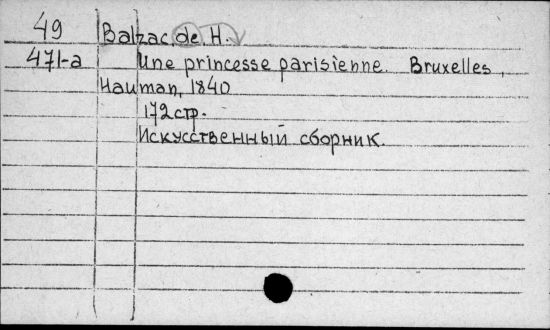 49 Balzac, de H.
471-a Une princesse parisienne. Bruxelles,
Hauman, 1840
172 стр.
Искусственный сборник.